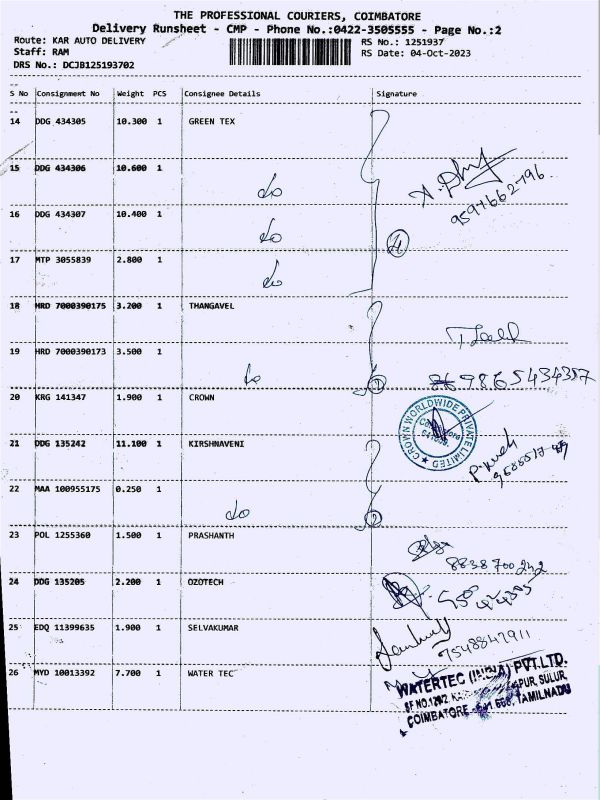 THE PROFESSIONAL COURIERS, COIMBATORE
Delivery Runsheet - CMP - Phone No.:0422-3505555 - Page No.:2
Route: KAR AUTO DELIVERY RS No.: 1251937
Staff: RAM RS Date: 04-Oct-2023
DRS No.: DCJB125193702
S No Consignment No Weight PCS Consignee Details Signature
14 DDG 434305 10.300 1 GREEN TEX
15 DDG 434306 10.600 1 do
16 DDG 434307 10.400 1 do
4
17 MTP 3055839 2.800 1 do
18 HRD 7000390175 3.200 1 THANGAVEL
19 HRD 7000390173 3.500 1 do
9865434357
20 KRG 141347 1.900 1 CROWN
CROWN WORLDWIDE PRIVATE LIMITED
21 DDG 135242 11.100 1 KIRSHNAVENI
22 MAA 100955175 0.250 1 do 2
23 POL 1255360 1.500 1 PRASHANTH
8838700242
24 DDG 135205 2.200 1 OZOTECH
25 EDQ 11399635 1.900 1 SELVAKUMAR
7548847911
26 MYD 10013392 7.700 1 WATER TEC
WATERTEC (INDIA) PVT.LTD.
SULUR,
COIMBATORE TAMILNADU